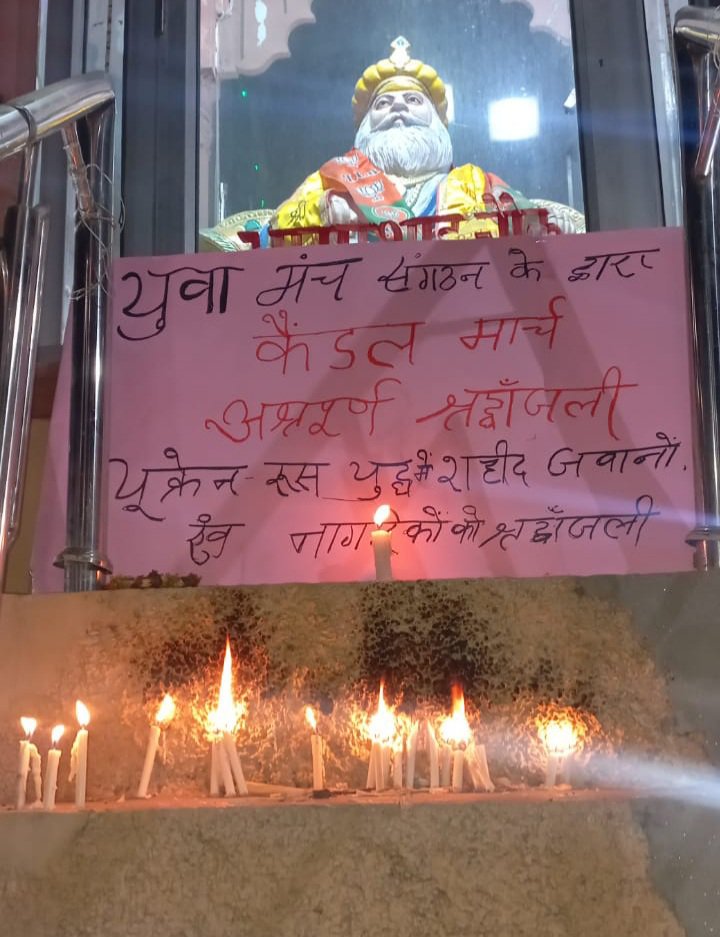 श्री
युवा मंच संगठन के द्वारा
कैंडल मार्च
अश्रूपूर्ण श्रद्धाँजली
यूक्रेन-रूस युद्ध में शहीद जवानों.
एंव नागरिकों को श्रद्धाँजली